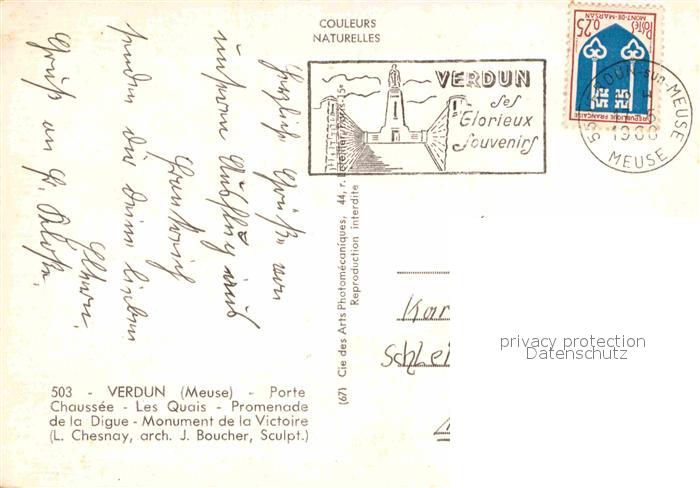 COULEURS
NATURELLES
VERDUN
Ses
Glorieux
Souvenirs
Postes
MONT-DE-MARSAN
0,25
REPUBLIQUE FRANCAISE
55 SUR-MEUSE
MEUSE
Herzliche Grüße von
unserem Ausflug aus
Frankreich
senden die lieben
Eltern.
Gruß an
44, r. Letellier, Paris-15e
(67) Cie des Arts Photomécaniques,
Reproduction interdite
Kar
Schlei
privacy protection
Datenschutz
503 - VERDUN (Meuse) - Porte
Chaussée - Les Quais - Promenade
de la Digue - Monument de la Victoire
(L. Chesnay, arch. J. Boucher, Sculpt.)